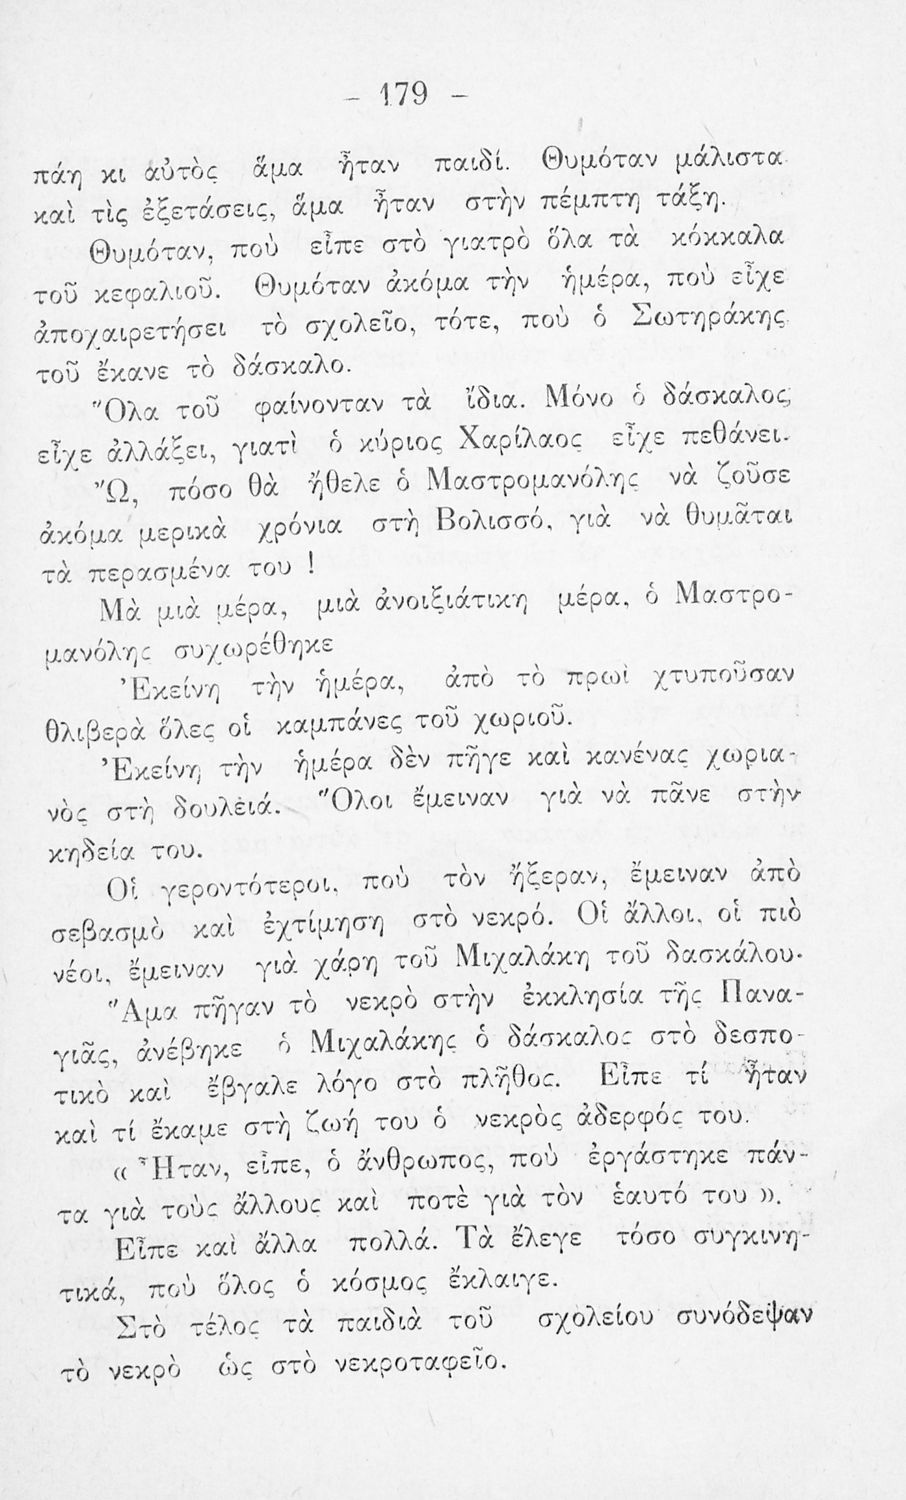 – 179 –
πάη κι αὐτὸς ἅμα ἦταν παιδί. Θυμόταν μάλιστα
καὶ τὶς ἐξετάσεις, ἅμα ἦταν στὴν πέμπτη τάξη.
Θυμόταν, ποὺ εἶπε στὸ γιατρὸ ὅλα τὰ κόκκαλα
τοῦ κεφαλιοῦ. Θυμόταν ἀκόμα τὴν ἡμέρα, ποὺ εἶχε
ἀποχαιρετήσει τὸ σχολεῖο, τότε, ποὺ ὁ Σωτηράκης
τοῦ ἔκανε τὸ δάσκαλο.
Ὅλα τοῦ φαίνονταν τὰ ἴδια. Μόνο ὁ δάσκαλος
εἶχε ἀλλάξει, γιατὶ ὁ κύριος Χαρίλαος εἶχε πεθάνει.
Ὦ, πόσο θὰ ἤθελε ὁ Μαστρομανόλης νὰ ζοῦσε
ἀκόμα μερικὰ χρόνια στὴ Βολισσό, γιὰ νὰ θυμᾶται
τὰ περασμένα του !
Μὰ μιὰ μέρα, μιὰ ἀνοιξιάτικη μέρα, ὁ Μαστρο-
μανόλης συχωρέθηκε
Ἐκείνη τὴν ἡμέρα, ἀπὸ τὸ πρωὶ χτυποῦσαν
θλιβερὰ ὅλες οἱ καμπάνες τοῦ χωριοῦ.
Ἐκείνη τὴν ἡμέρα δὲν πῆγε καὶ κανένας χωρια-
νὸς στὴ δουλειά. Ὅλοι ἔμειναν γιὰ νὰ πᾶνε στὴν
κηδεία του.
Οἱ γεροντότεροι, ποὺ τὸν ἤξεραν, ἔμειναν ἀπὸ
σεβασμὸ καὶ ἐχτίμηση στὸ νεκρό. Οἱ ἄλλοι, οἱ πιὸ
νέοι, ἔμειναν γιὰ χάρη τοῦ Μιχαλάκη τοῦ δασκάλου.
Ἅμα πῆγαν τὸ νεκρὸ στὴν ἐκκλησία τῆς Πανα-
γιᾶς, ἀνέβηκε ὁ Μιχαλάκης ὁ δάσκαλος στὸ δεσπο-
τικὸ καὶ ἔβγαλε λόγο στὸ πλῆθος. Εἶπε τί ἦταν
καὶ τί ἔκαμε στὴ ζωή του ὁ νεκρὸς ἀδερφός του.
« Ἦταν, εἶπε, ὁ ἄνθρωπος, ποὺ ἐργάστηκε πάν-
τα γιὰ τοὺς ἄλλους καὶ ποτὲ γιὰ τὸν ἑαυτό του ».
Εἶπε καὶ ἄλλα πολλά. Τὰ ἔλεγε τόσο συγκινη-
τικά, ποὺ ὅλος ὁ κόσμος ἔκλαιγε.
Στὸ τέλος τὰ παιδιὰ τοῦ σχολείου συνόδεψαν
τὸ νεκρὸ ὡς στὸ νεκροταφεῖο.